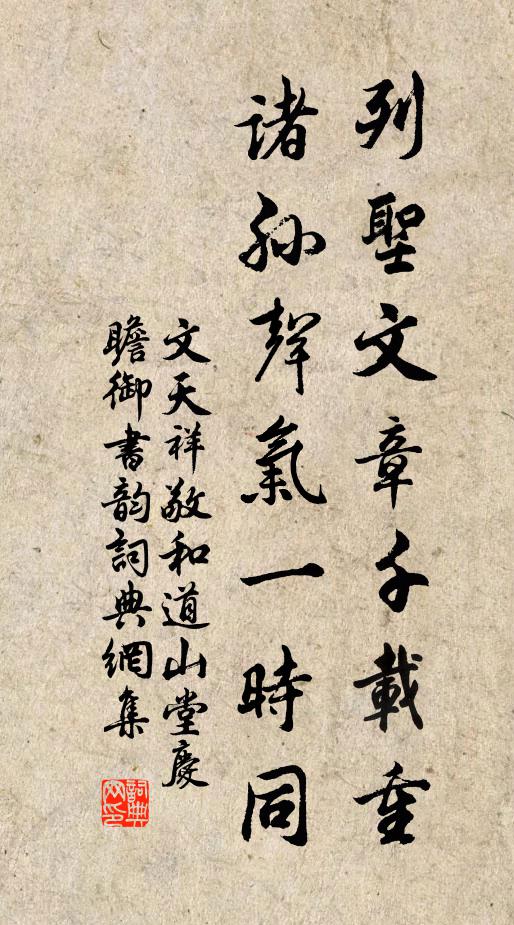 列聖文章千載重
諸孫聲氣一時同
文天祥敬和道山堂慶
瞻御書韵詞典網集
詞典
网印